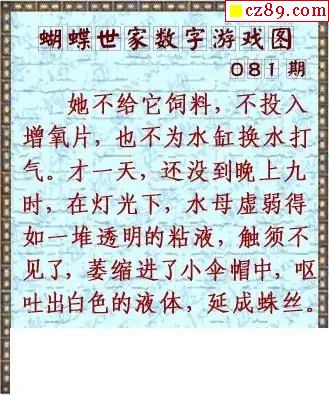 cz89.com
蝴蝶世家数字游戏图
081期
她不给它饲料，不投入
增氧片，也不为水缸换水打
气。才一天，还没到晚上九
时，在灯光下，水母虚弱得
如一堆透明的粘液，触须不
见了，萎缩进了小伞帽中，呕
吐出白色的液体，延成蛛丝。